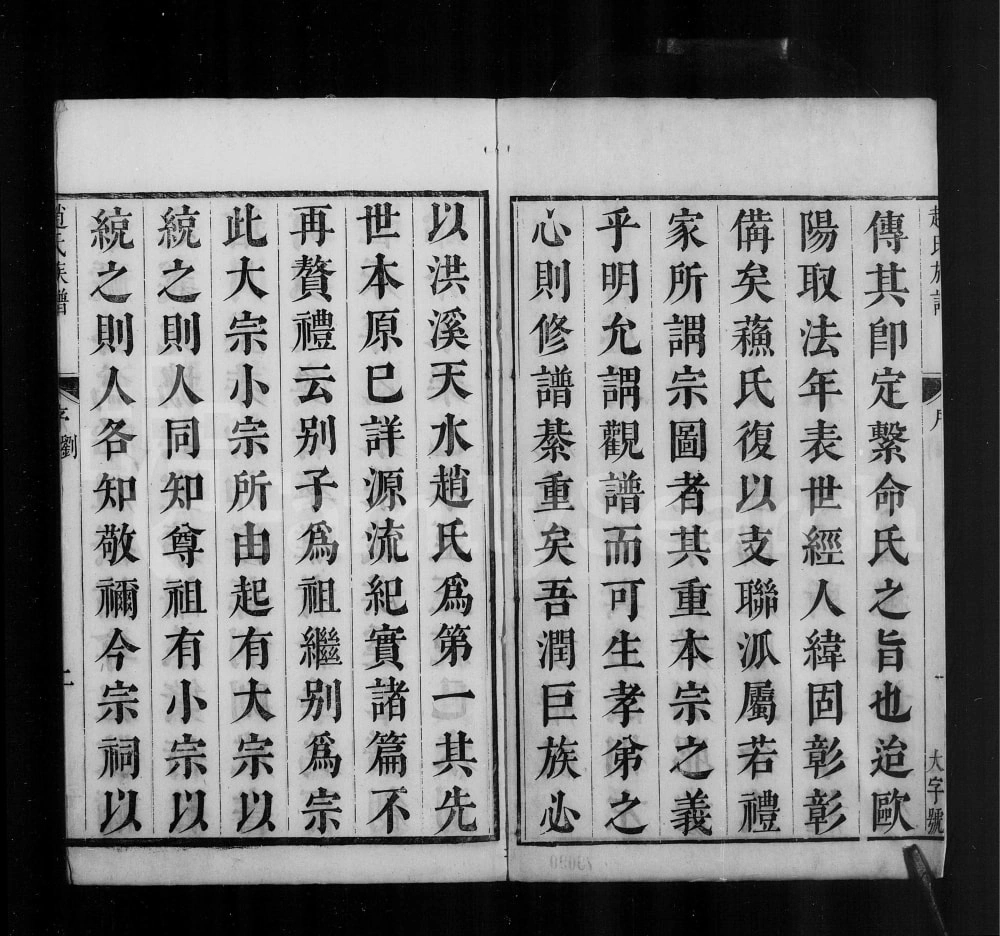 趙氏族譜
序
一
大字號
傳其卽定繫命氏之旨也迨歐
陽取法年表世經人緯固彰彰
備矣蘓氏復以支聯泒屬若禮
家所謂宗圖者其重本宗之義
乎明允謂觀譜而可生孝弟之
心則修譜綦重矣吾潤巨族必
以洪溪天水趙氏爲第一其先
世本原已詳源流紀實諸篇不
再贅禮云别子爲祖繼别爲宗
此大宗小宗所由起有大宗以
統之則人同知尊祖有小宗以
統之則人各知敬禰今宗祠以
趙氏族譜
序 劉
二